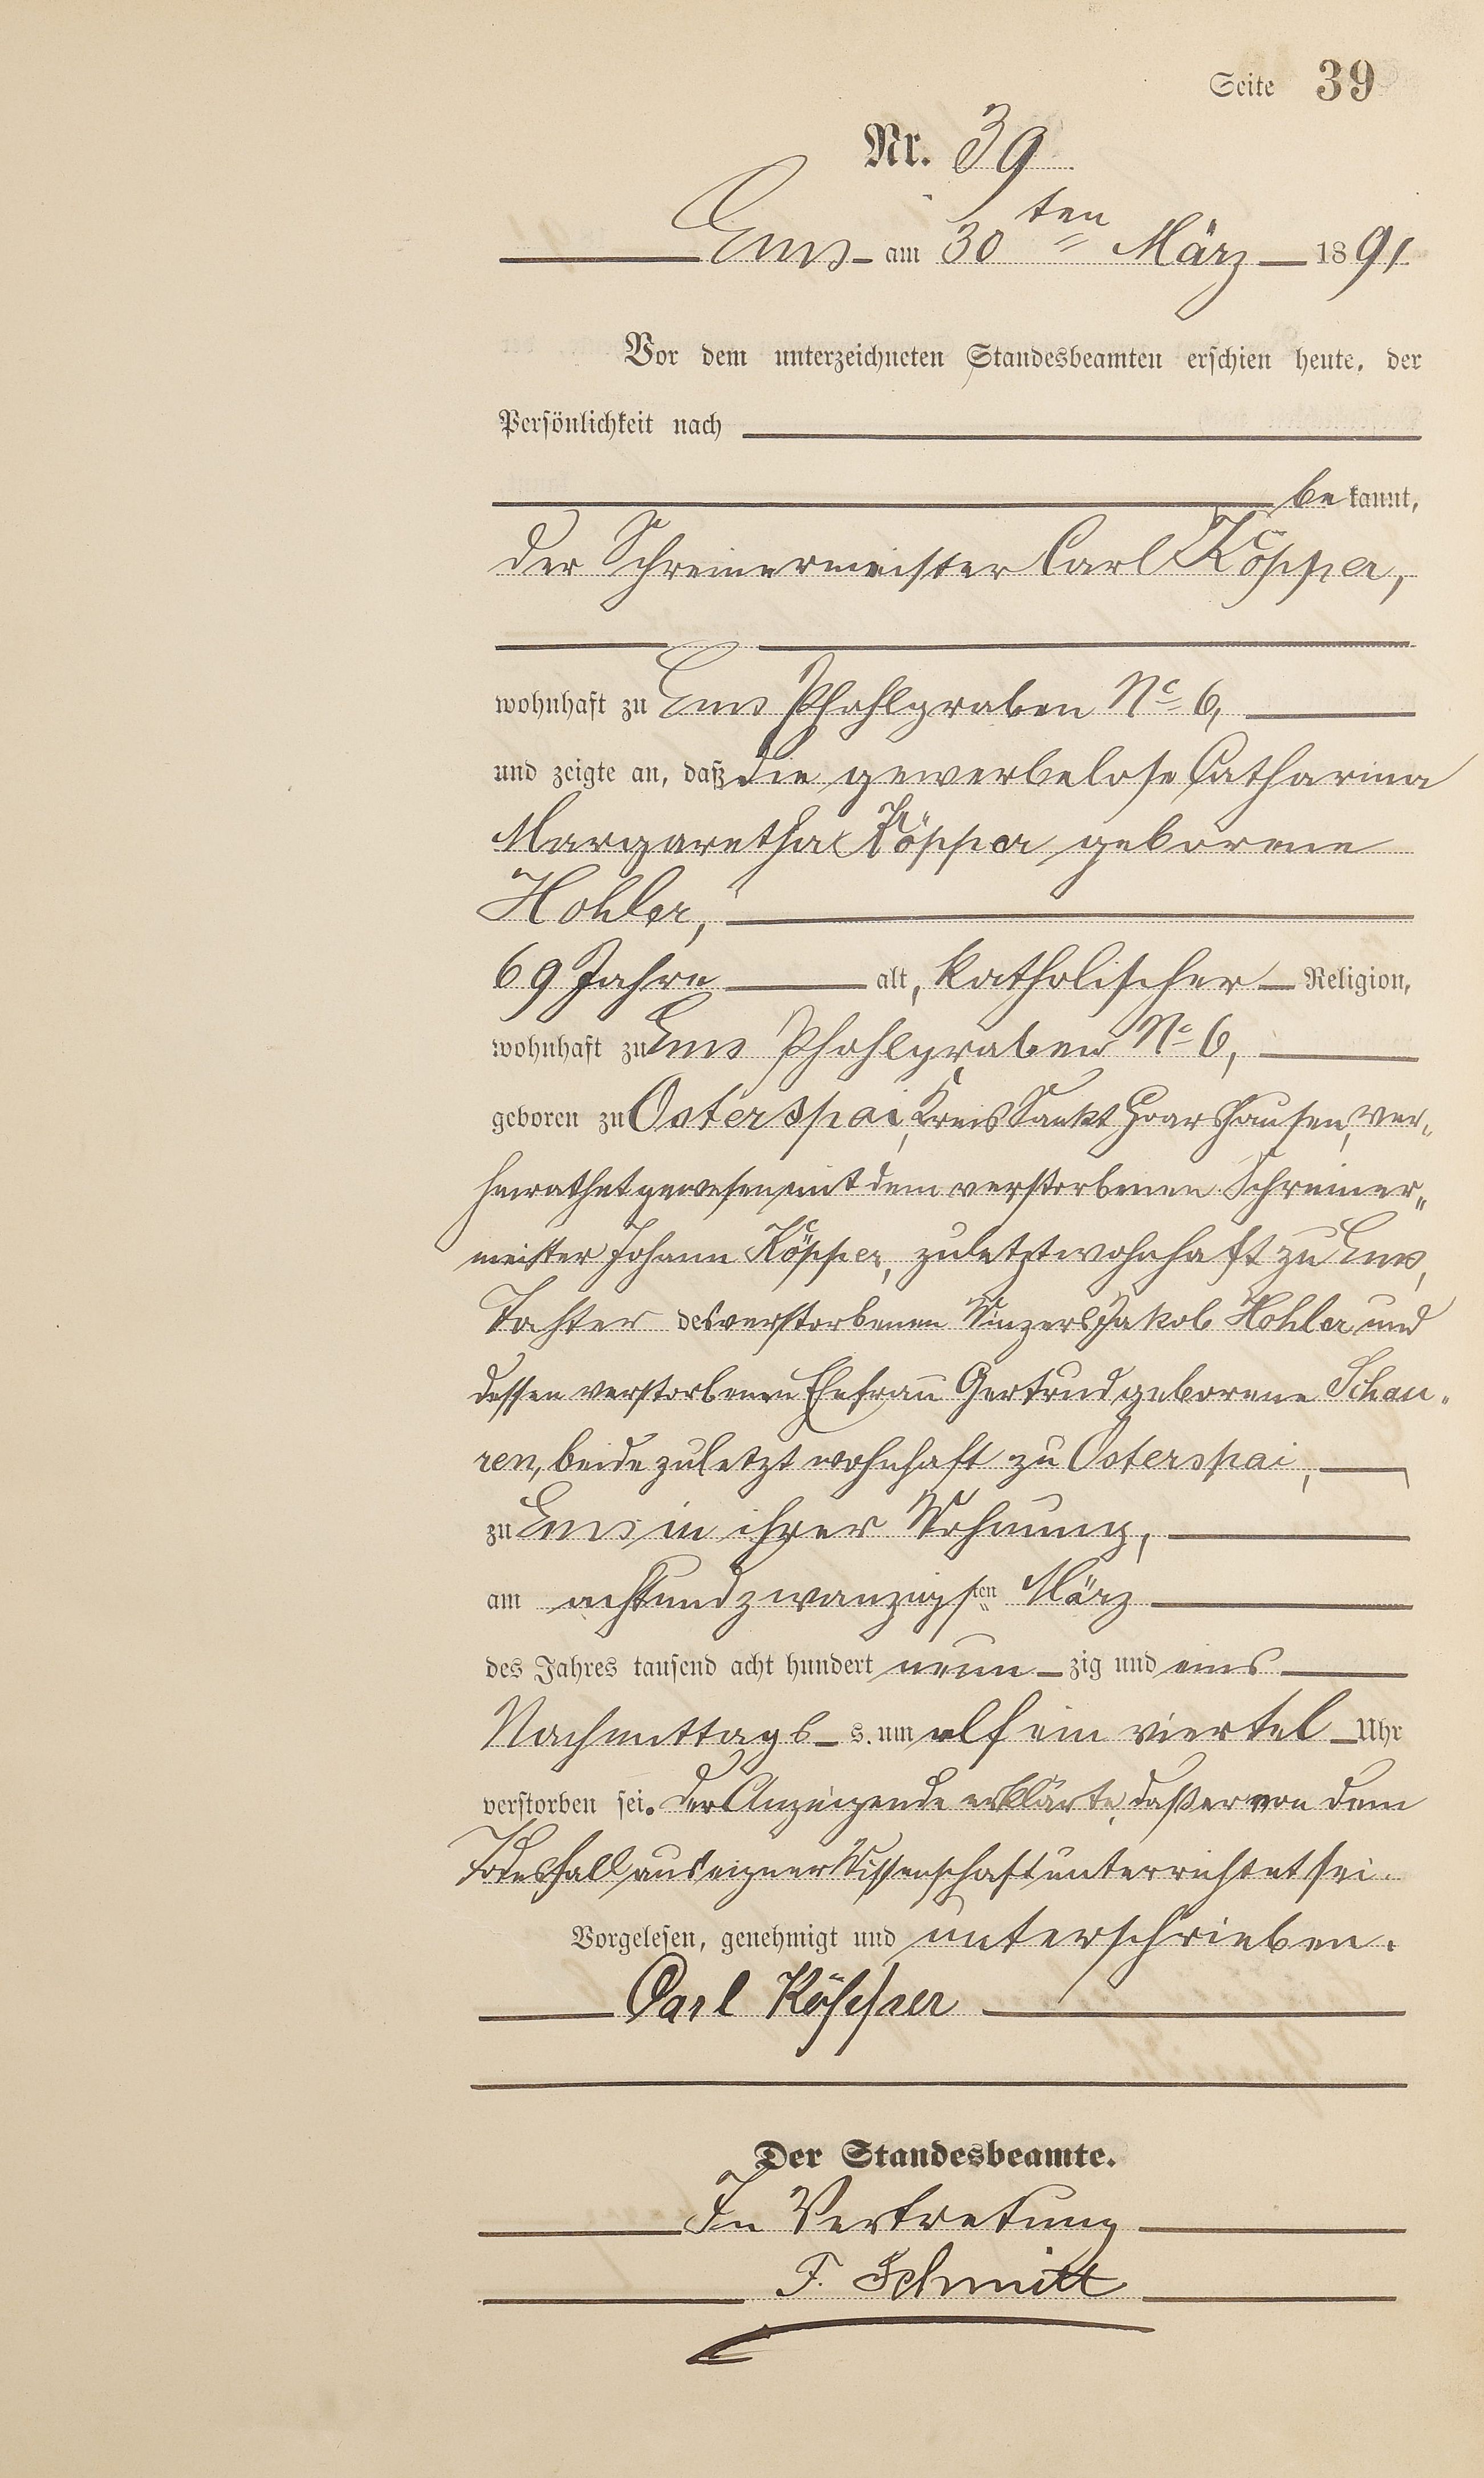 Seite 39
Nr. 39
Ems am 30ten März 1891
Vor dem unterzeichneten Standesbeamten erschien heute, der
Persönlichkeit nach
bekannt,
der Schreinermeister Carl Köpper,
wohnhaft zu Ems Pfahlgraben No 6,
und zeigte an, daß die gewerbelose Catharina
Margaretha Köpper geborene
Hohler,
69 Jahre alt, katholischer Religion,
wohnhaft zu Ems Pfahlgraben No 6,
geboren zu Osterspai, Kreis Sankt Goarshausen, ver„
heirathet gewesen mit dem verstorbenen Schreiner„
meister Johann Köpper, zuletzt wohnhaft zu Ems,
Tochter des verstorbenen Winzers Jakob Hohler und
dessen verstorbenen Ehefrau Gertrud geborene Schau„
ren, beide zuletzt wohnhaft zu Osterspai,
zu Ems in ihrer Wohnung,
am achtundzwanzigsten März
des Jahres tausend acht hundert neunzig und eins
Nachmittags s. um elf ein viertel Uhr
verstorben sei. Der Anzeigende erklärte, daß er von dem
Todesfall aus eigner Wissenschaft unterrichtet sei.
Vorgelesen, genehmigt und unterschrieben.
Carl Köpper
Der Standesbeamte.
In Vertretung
F. Schmitt